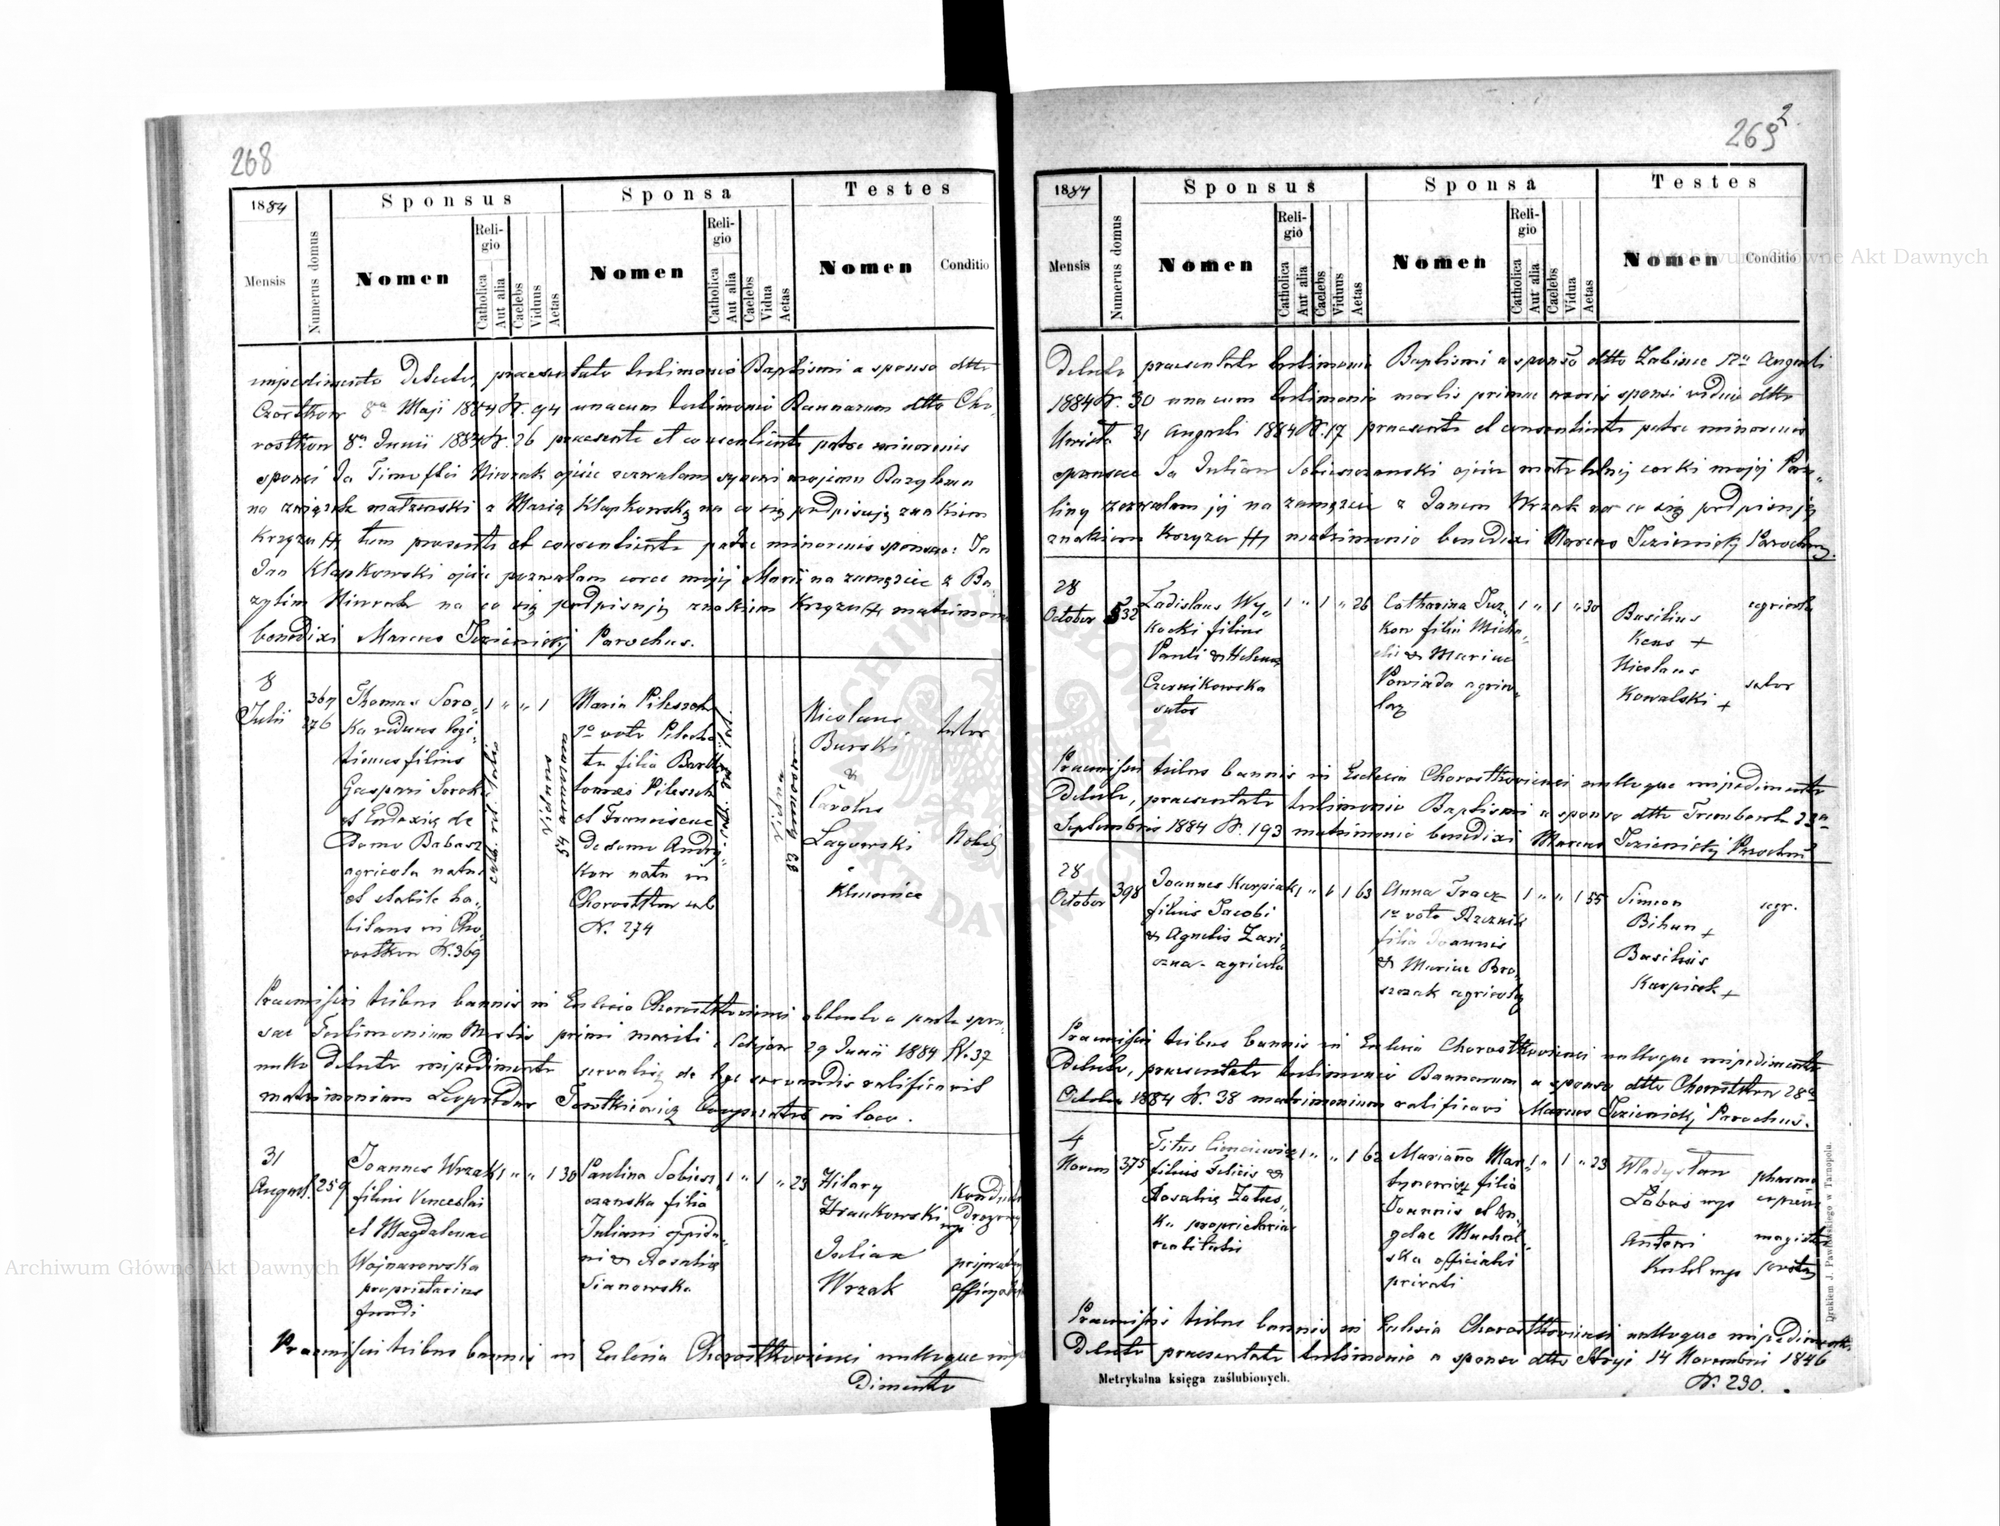 268
1884
Mensis
Numerus domus
Sponsus
Nomen
Religio
Catholica
Aut alia
Caelebs
Viduus
Aetas
Sponsa
Nomen
Religio
Catholica
Aut alia
Caelebs
Vidua
Aetas
Testes
Nomen
Conditio
impedimento detecto, praesentato testimonio Baptismi a sponso ddto
Czortkow 8va Maji 1884 N. 94 unacum testimonio Bannorum ddto Cho-
rostkow 8va Junii 1884 N. 26 praesente et consentiente patre minorenis
sponsi Ja Timoftei ojciec zezwalam synowi mojemu Bazylemu
na związek małżenski z Marią Klapkowską na co się podpisuję znakiem
Krzyża ++ tum presente et consentiente patre minorenis sponsae: Ja
Jan Klapkowski ojciec pozwalam corce mojej Marii na zamęscie z Ba-
zylim na co się podpisuję znakiem Krzyża ++ matrimoni
benedixi Marcus Parochus.
8
Julii
367
276
Thomas Soro-
ka viduus legi-
timus filius
Gaspari Soroka
et Eudoxię de
Domo Babasz
agricola natus
et stabile ha-
bitans in Cho-
rostkow N. 369
1 " " 1
cath. rit. lat.
Viduus
54 annorum
Maria Pileszek
1o voto
ta filia Bartho
lomaei Pileszek
et Franciscae
de domo Andry-
kow nata in
Chorostkow sub
N. 274
Vidua
33 annorum
Nicolaus
Burski
&
Carolus
Lagowski
Klmonica
sutor
Nobilis
Praemissis tribus bannis in Ecclesia Chorostkoviensi obtento a parte spon-
sae Testimonium Mortis primi mariti 29 Junii 1884 N. 37
nullo detecto impedimento servatis de lege servandis ratificavit
matrimonium Leopoldus Cooperator in loco.
31
August.
259
Joannes Wrzak
filius Venceslai
et Magdalenae
Wojnarowska
proprietarius
fundi
1 " " 1 30
Paulina Sobiesz
czanska filia
Juliani oppida-
ni & Rosalia
Sianowska
1 " 1 " 23
Hilary
Hrankowski
mp
Julian
Wrzak
Kondukt
Drogowy
prywatny
Praemissis tribus bannis in Ecclesia Chorostkoviensi nulloque impe
dimento
269
2
1884
Mensis
Numerus domus
Sponsus
Nomen
Religio
Catholica
Aut alia
Caelebs
Viduus
Aetas
Sponsa
Nomen
Religio
Catholica
Aut alia
Caelebs
Vidua
Aetas
Testes
Nomen
Conditio
detecto, praesentato testimonio Baptismi a sponso ddto Zabince 17a Augusti
1884 N. 30 una cum testimonio mortis primae uxoris sponsi vidui ddto
31 Augusti 1884 N. 17 praesente et consentiente patre minorenis
sponsae Ja Julian Sobieszczanski ojciec małoletniej corki mojej Pau-
liny zezwalam jej na zamęscie z Janem Wrzak na co się podpisuję
znakiem Krzyża ++ matrimonio benedixi Marcus Parochus.
28
October
532
Ladislaus Wy-
socki filius
Pauli & Helena
Czernikowska
sutor
1 " 1 " 26
Catharina Juz-
kow filia Micha
elis & Mariae
Powiada agrico-
lae
1 " 1 " 30
Basilius
Kens +
Nicolaus
Kowalski +
agricola
sutor
Praemissis tribus bannis in Ecclesia Chorostkoviensi nulloque impedimento
detecto, praesentato testimonio Baptismi a sponso ddto Trembowla 23a
Septembris 1884 N. 193 matrimonio benedixi Marcus Parochus
28
October
398
Joannes Karpiak
filius Jacobi
& Agnetis Zari-
czna - agricola
1 " " 1 63
Anna Tracz
1o voto Rzeznik
filia Joannis
& Mariae Bro-
szczak agricolae
1 " " 1 55
Simeon
Bihun +
Basilius
Karpiak +
agr.
Praemissis tribus bannis in Ecclesia Chorostkoviensi nulloque impedimento
detecto, praesentato testimonio Bannorum a sponso ddto Chorostkow 28a
October 1884 N. 38 matrimonium ratificavi Marcus Parochus.
4
Novem
375
Titus
filius Felicis &
Rosalię Zales-
Ka proprietarius
realitatis
1 " " 1 62
Marianna Mar-
tynowicz filia
Joannis et An-
gelae Muchal-
ska officialis
privati
1 " 1 " 23
Władysław
Łobos mp
Antoni
mp
magister
Praemissis tribus bannis in Ecclesia Chorostkoviensi nulloque impedimento
detecto praesentato testimonio a sponso ddto Stryi 14 Novembris 1846
N. 230.
Metrykalna księga zaślubionych.
Drukiem J. Pawłowskiego w Tarnopolu.
Archiwum Główne Akt Dawnych
Archiwum Główne Akt Dawnych
ARCHIWUM GŁÓWNE AKT DAWNYCH